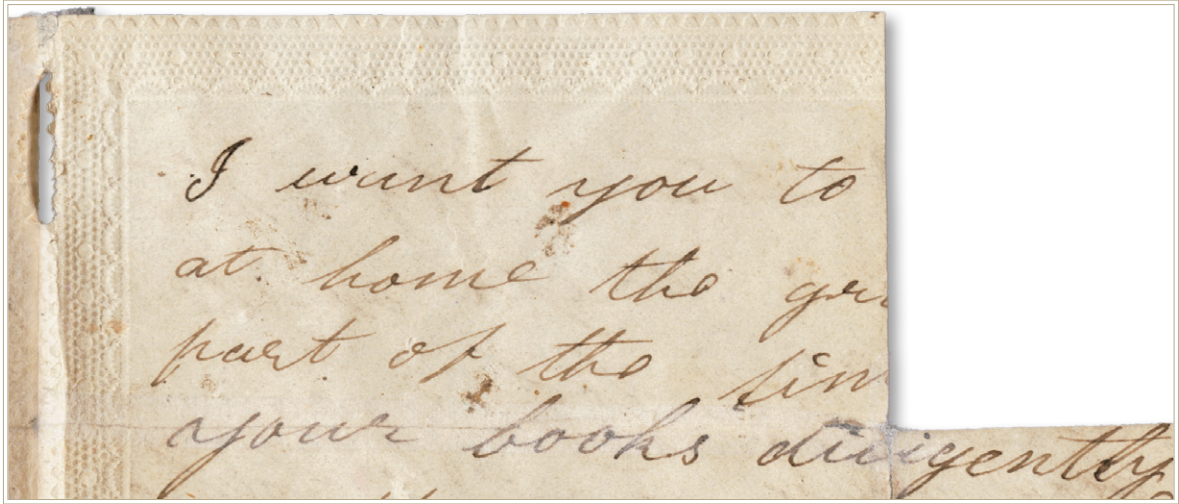 I want you to
at. home the
part of the
your books diligently